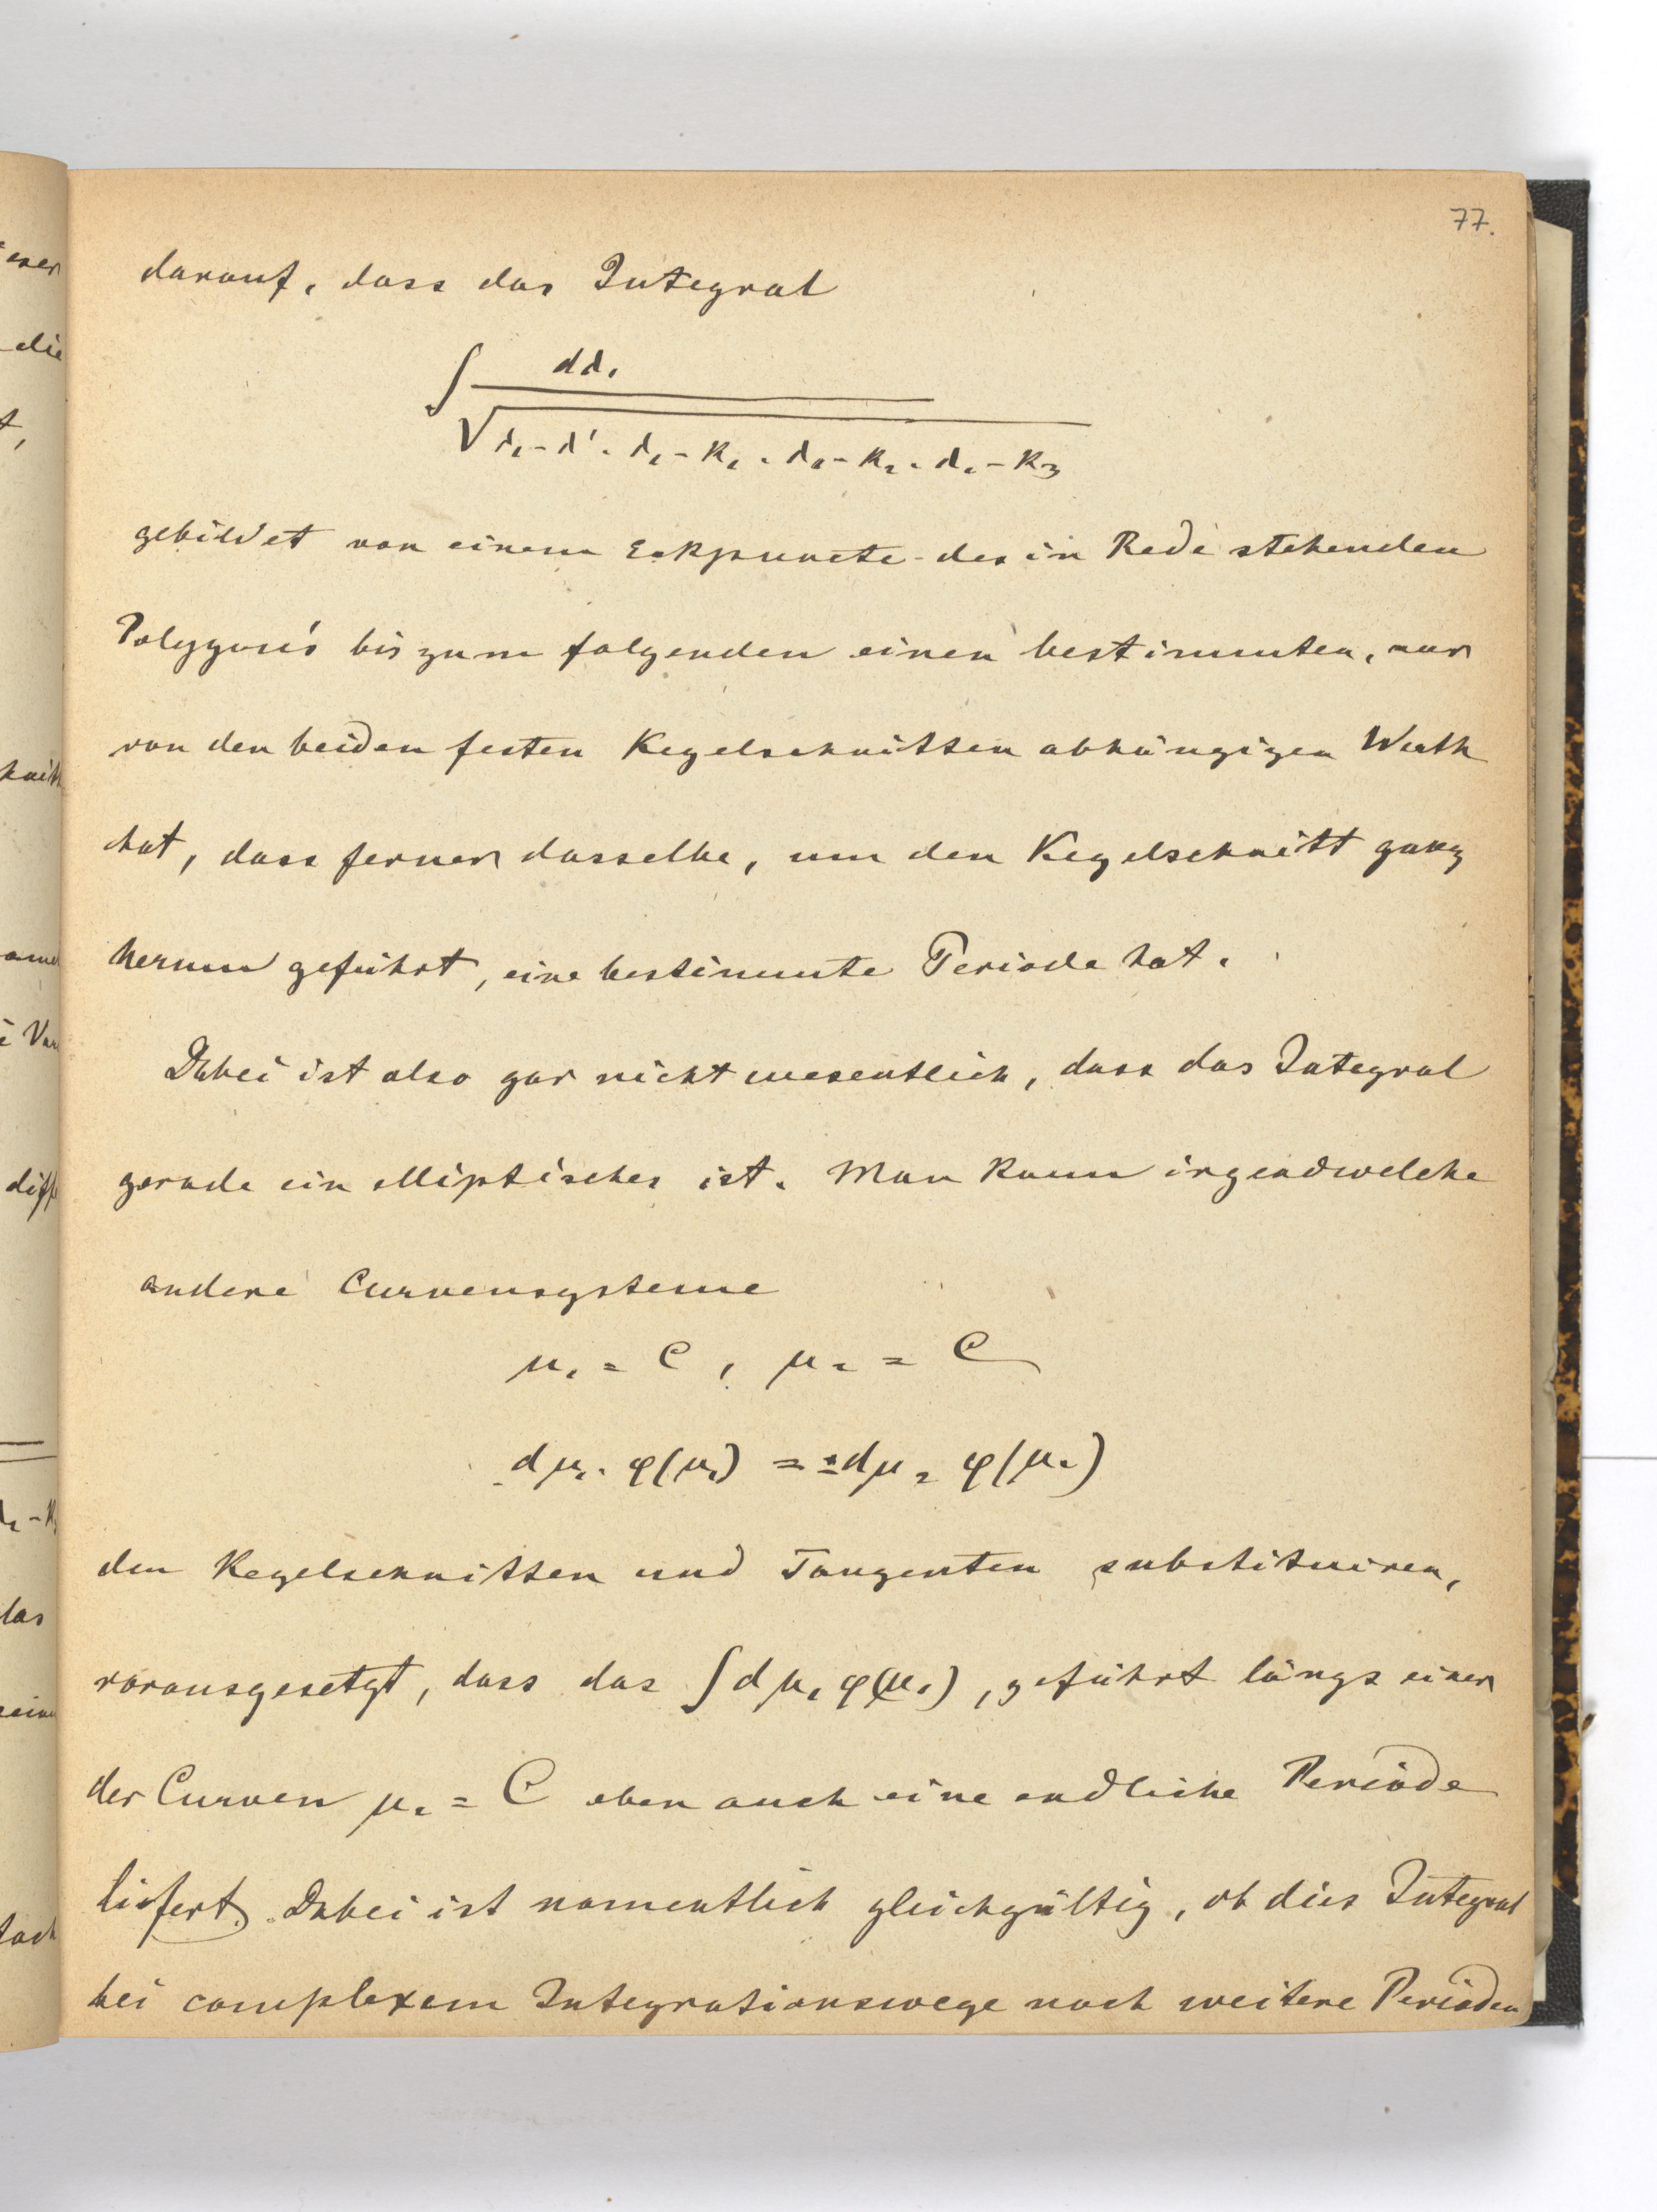 77.
darauf, dass das Integral
∫ dλ₁
√λ₁-λ'. λ₁-k₁. λ₁-k₂. λ₁-k₃
gebildet von einem Eckpuncte des in Rede stehenden
Polygon's bis zum folgenden einen bestimmten, nur
von den beiden festen Kegelschnitten abhängigen Werth
hat, dass ferner dasselbe, um den Kegelschnitt ganz
herum geführt, eine bestimmte Periode hat.
Dabei ist also gar nicht wesentlich, dass das Integral
gerade ein elliptisches ist. Man kann irgendwelche
andere Curvensysteme
μ₁ = C, μ₂ = C
dμ₁. φ(μ₁) = ± dμ₂ φ(μ₂)
den Kegelschnitten und Tangenten substituiren,
vorausgesetzt, dass das ∫dμ₁ φ(μ₁), geführt längs einer
der Curven μ₂ = C eben auch eine endliche Periode
liefert. Dabei ist namentlich gleichgültig, ob dies Integral
bei complexem Integrationswege noch weitere Perioden